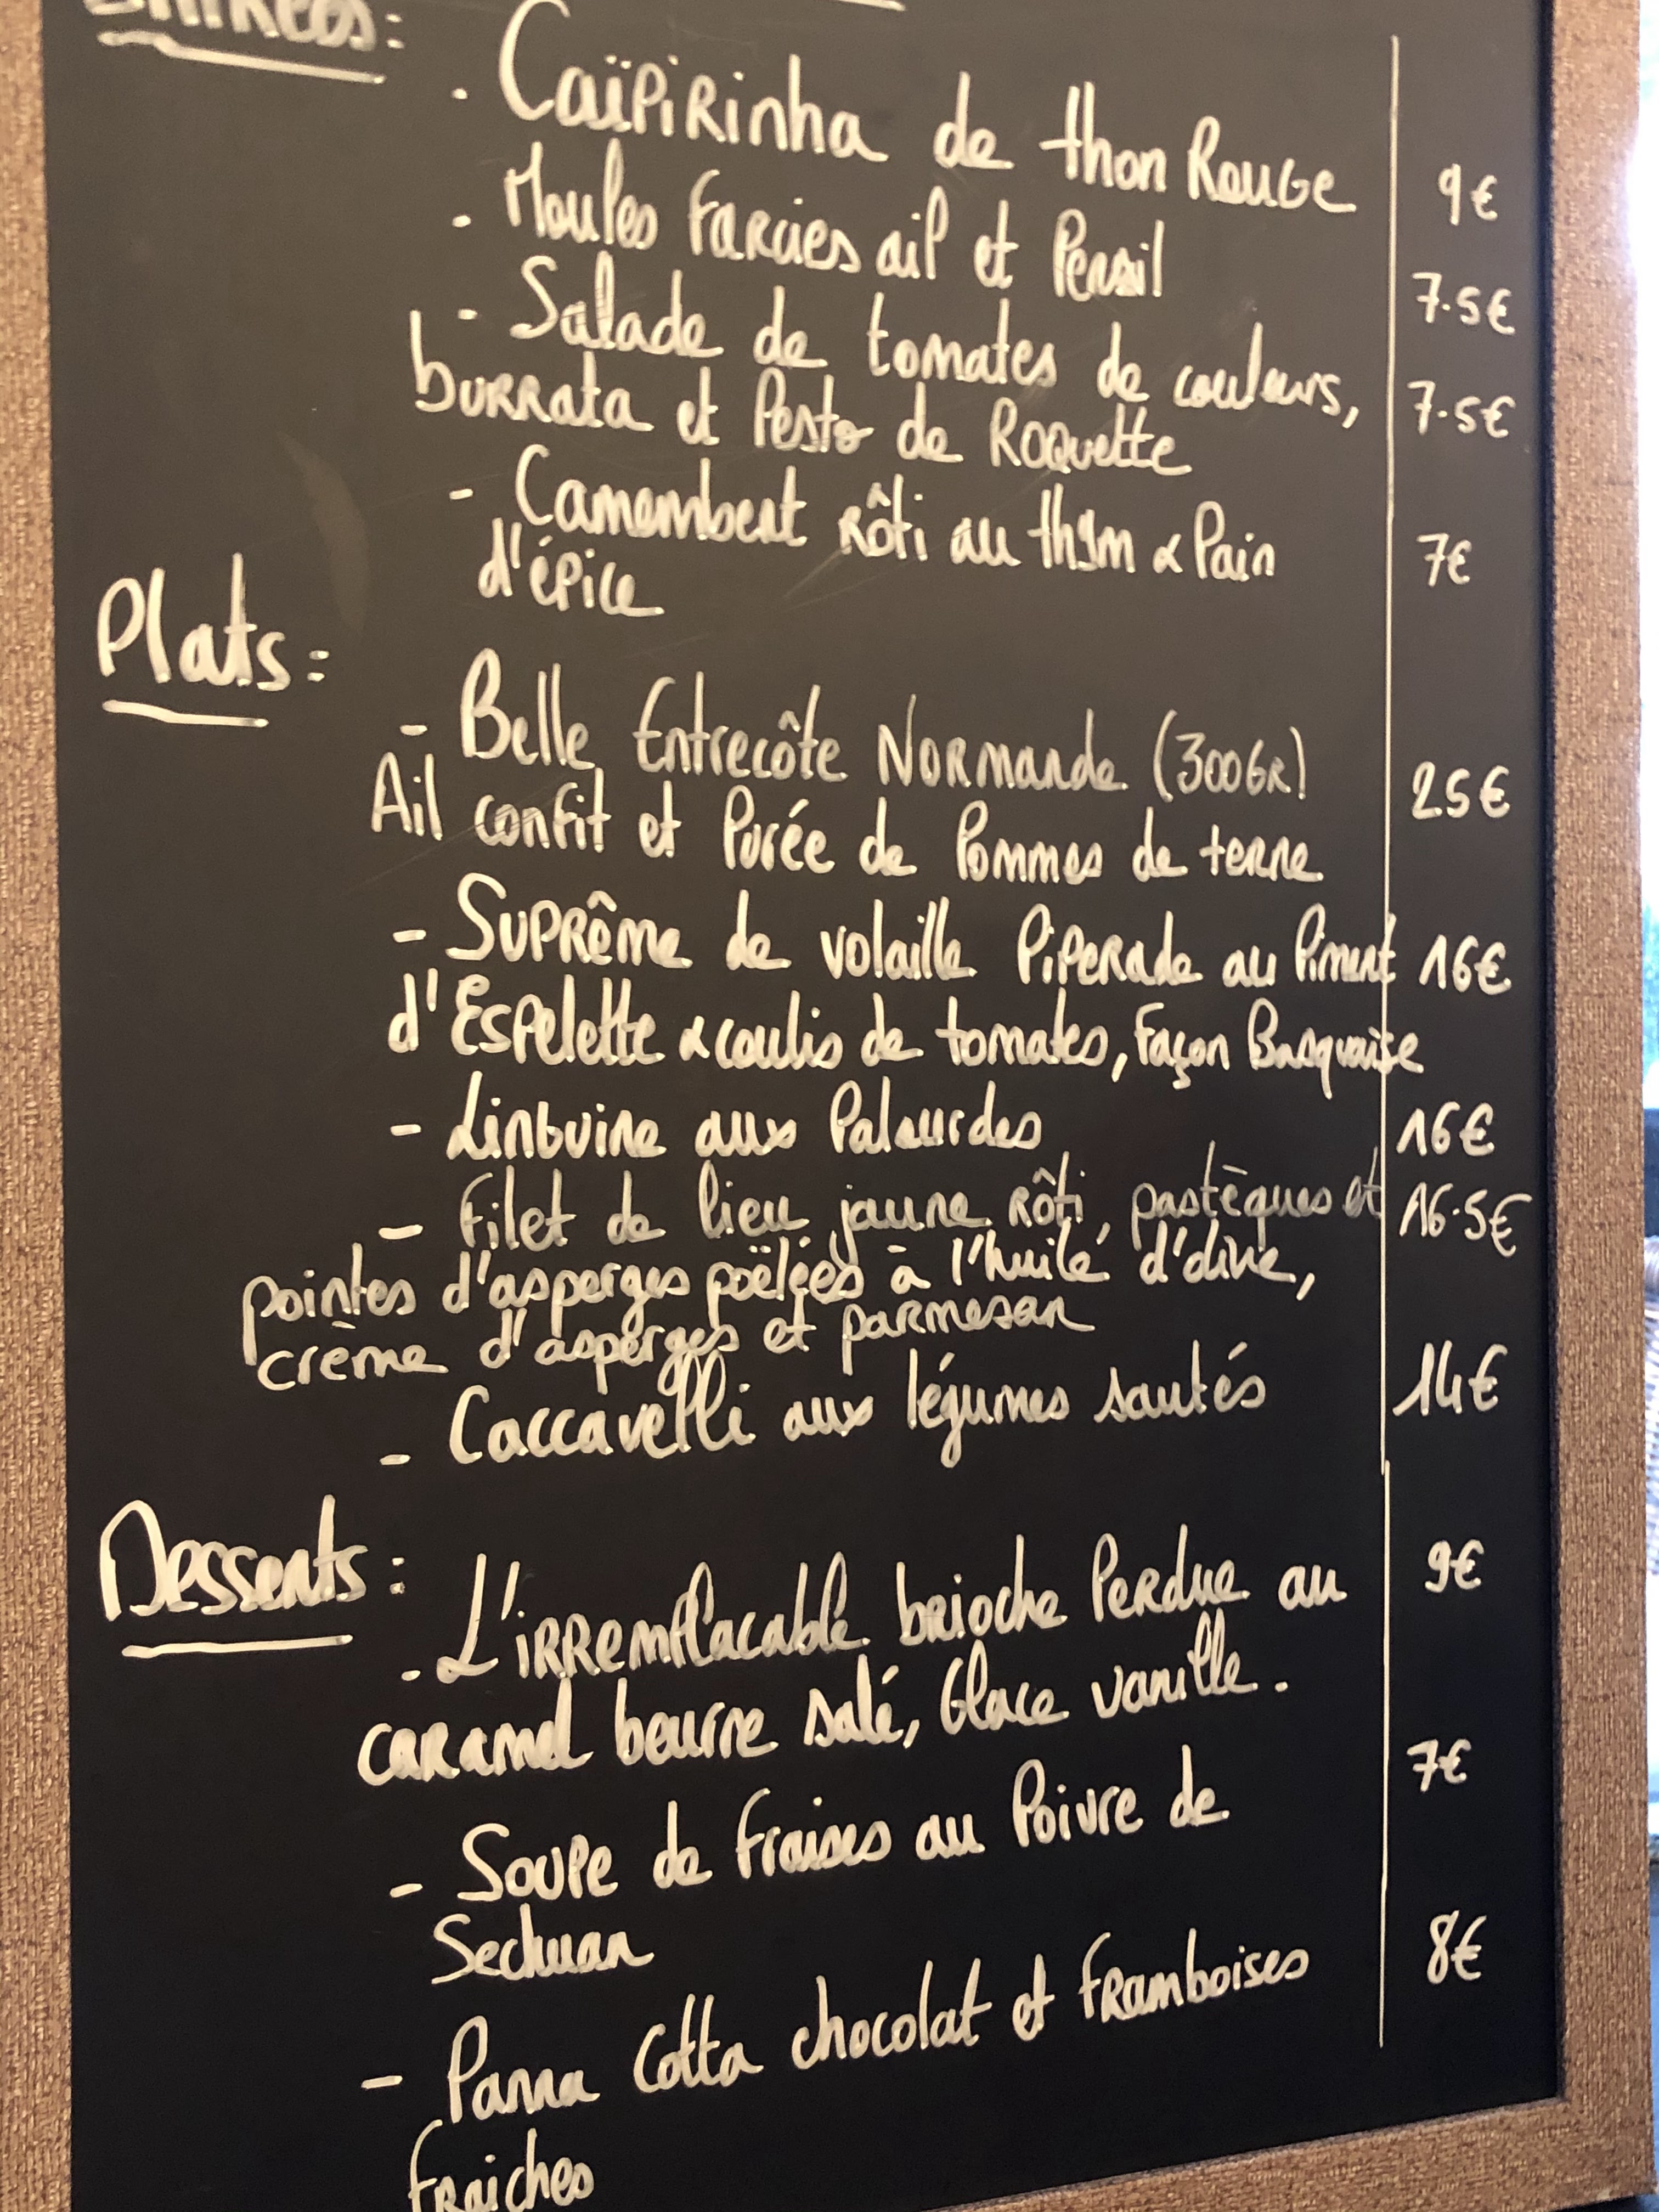 Entrées :
. Caïpirinha de thon Rouge 9€
. Moules Farcies ail et Persil 7.5€
- Salade de tomates de couleurs, 7.5€
burrata et Pesto de Roquette
- Camembert rôti au thym & Pain 7€
d'épice
Plats :
- Belle Entrecôte Normande (300Gr) 25€
Ail confit et Purée de Pommes de terre
- Suprême de volaille Piperade au Piment 16€
d'Espelette & coulis de tomates, Façon Basquaise
- Linguine aux Palourdes 16€
- Filet de lieu jaune Rôti, pastèques et 16.5€
pointes d'asperges poëlées à l'huile d'olive,
crème d'asperges et parmesan
- Caccavelli aux légumes sautés 14€
Desserts :
. L'irremplacable brioche Perdue au 9€
caramel beurre salé, Glace vanille.
- Soupe de Fraises au Poivre de 7€
Sechuan
- Panna Cotta chocolat et Framboises 8€
Fraiches